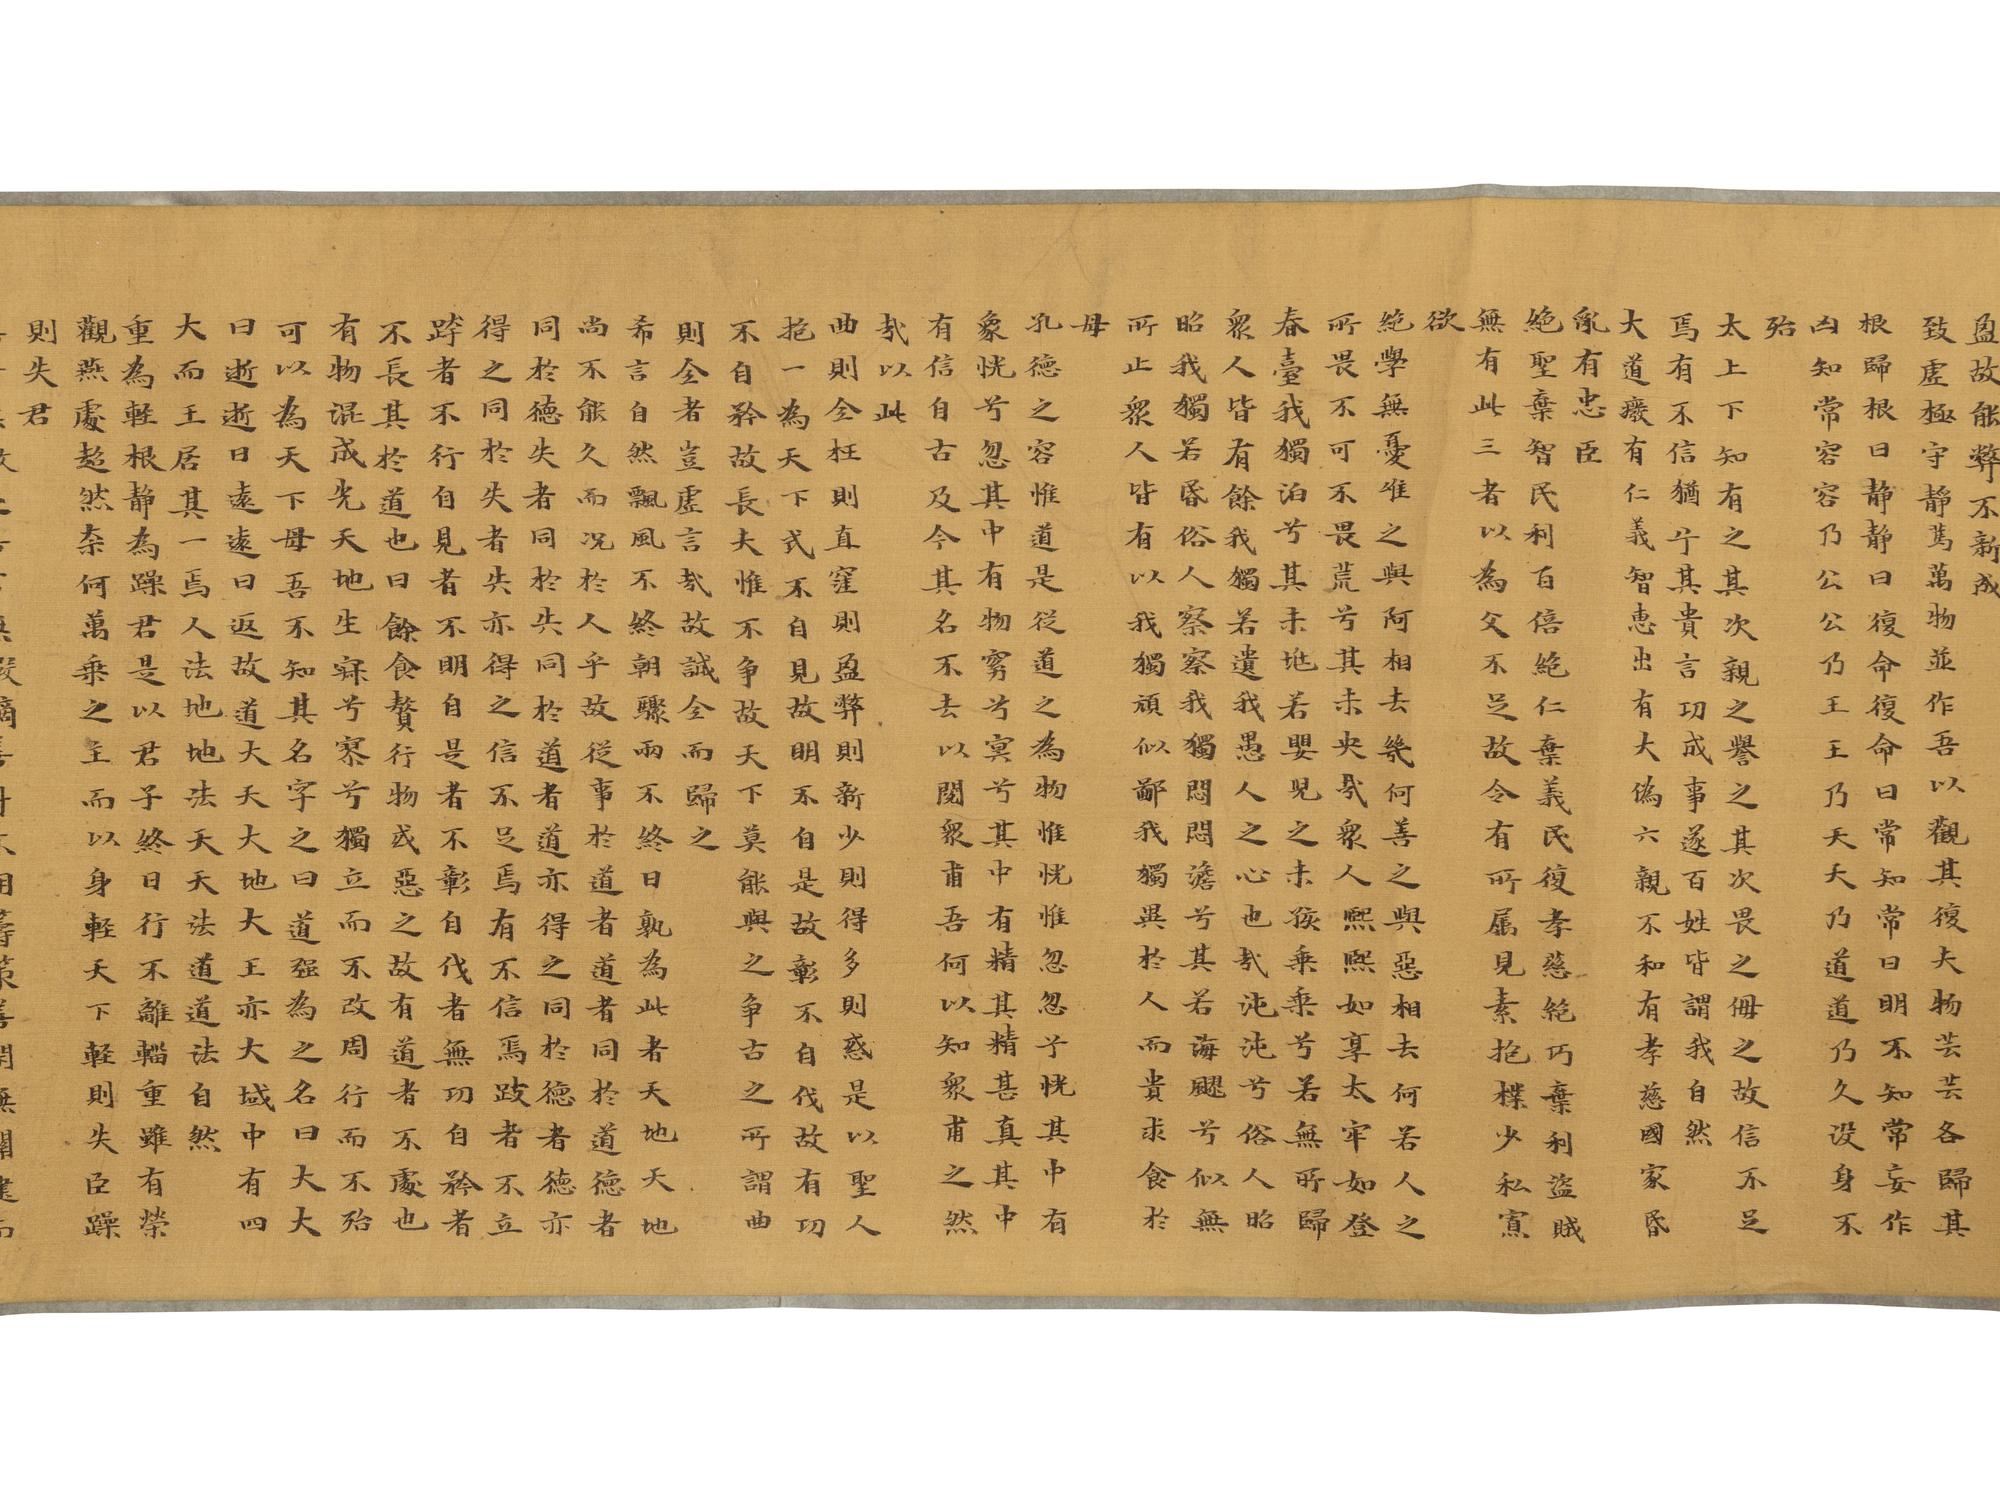 盈故能弊不新成
致虗極守静篤萬物並作吾以觀其復夫物芸芸各歸其
根歸根曰静静曰復命復命曰常知常曰明不知常妄作
凶知常容容乃公公乃王王乃天天乃道道乃久没身不
殆
太上下知有之其次親之譽之其次畏之侮之故信不足
焉有不信猶兮其貴言功成事遂百姓皆謂我自然
大道癈有仁義智惠出有大偽六親不和有孝慈國家昏
亂有忠臣
絶聖棄智民利百倍絶仁棄義民復孝慈絶巧棄利盜賊
無有此三者以為文不足故令有所属見素抱樸少私寡
欲
絶學無憂唯之與阿相去幾何善之與惡相去何若人之
所畏不可不畏荒兮其未央哉衆人熙熙如享太牢如登
春臺我獨泊兮其未兆若嬰兒之未孩乘乘兮若無所歸
衆人皆有餘我獨若遺我愚人之心也哉沌沌兮俗人昭
昭我獨若昏俗人察察我獨悶悶澹兮其若海飂兮似無
所止衆人皆有以我獨頑似鄙我獨異於人而貴求食於
母
孔德之容惟道是從道之為物惟恍惟忽忽兮恍其中有
象恍兮忽其中有物窈兮冥兮其中有精其精甚真其中
有信自古及今其名不去以閱衆甫吾何以知衆甫之然
哉以此
曲則全枉則直窪則盈弊則新少則得多則惑是以聖人
抱一為天下式不自見故明不自是故彰不自伐故有功
不自矜故長夫惟不争故天下莫能與之争古之所謂曲
則全者豈虛言哉故誠全而歸之
希言自然飄風不終朝驟雨不終日孰為此者天地天地
尚不能久而况於人乎故從事於道者道者同於道德者
同於德失者同於失同於道者道亦得之同於德者德亦
得之同於失者失亦得之信不足焉有不信焉跂者不立
跨者不行自見者不明自是者不彰自伐者無功自矜者
不長其於道也曰餘食贅行物或惡之故有道者不處也
有物混成先天地生寂兮寥兮獨立而不改周行而不殆
可以為天下母吾不知其名字之曰道强為之名曰大大
曰逝逝曰遠遠曰返故道大天大地大王亦大域中有四
大而王居其一焉人法地地法天天法道道法自然
重為軽根静為躁君是以君子終日行不離輜重雖有榮
觀燕處超然柰何萬乘之主而以身軽天下軽則失臣躁
則失君